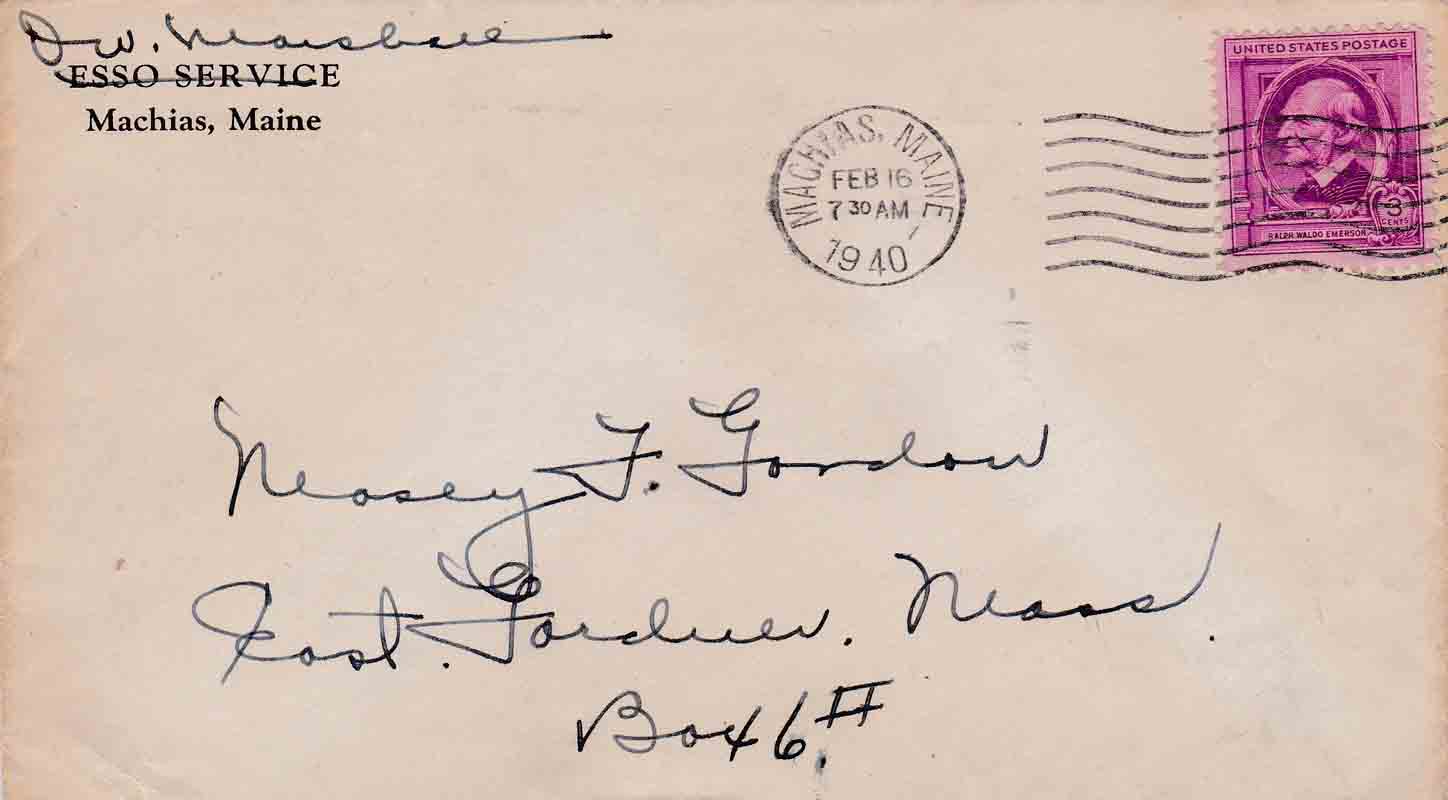 D. W. Marshall
ESSO SERVICE
Machias, Maine
MACHIAS, MAINE
FEB 16
7 30 AM
1940
UNITED STATES POSTAGE
3
CENTS
RALPH WALDO EMERSON
F. Gordon
East. Gardner. Mass.
Box 6